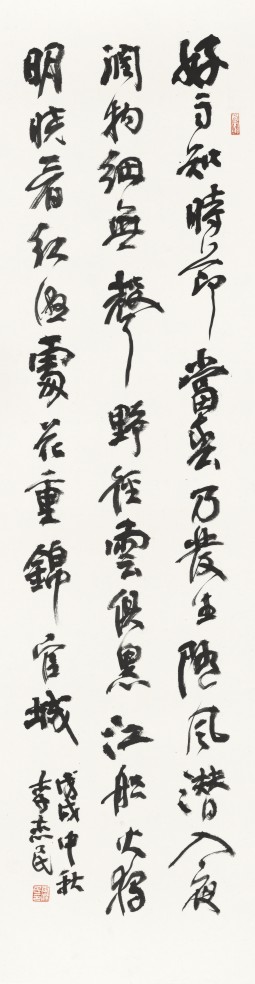 好雨知時節當春乃發生隨風潛入夜
潤物細無聲野徑雲俱黑江船火獨
明曉看紅濕處花重錦官城
戊戌中秋
李杰民